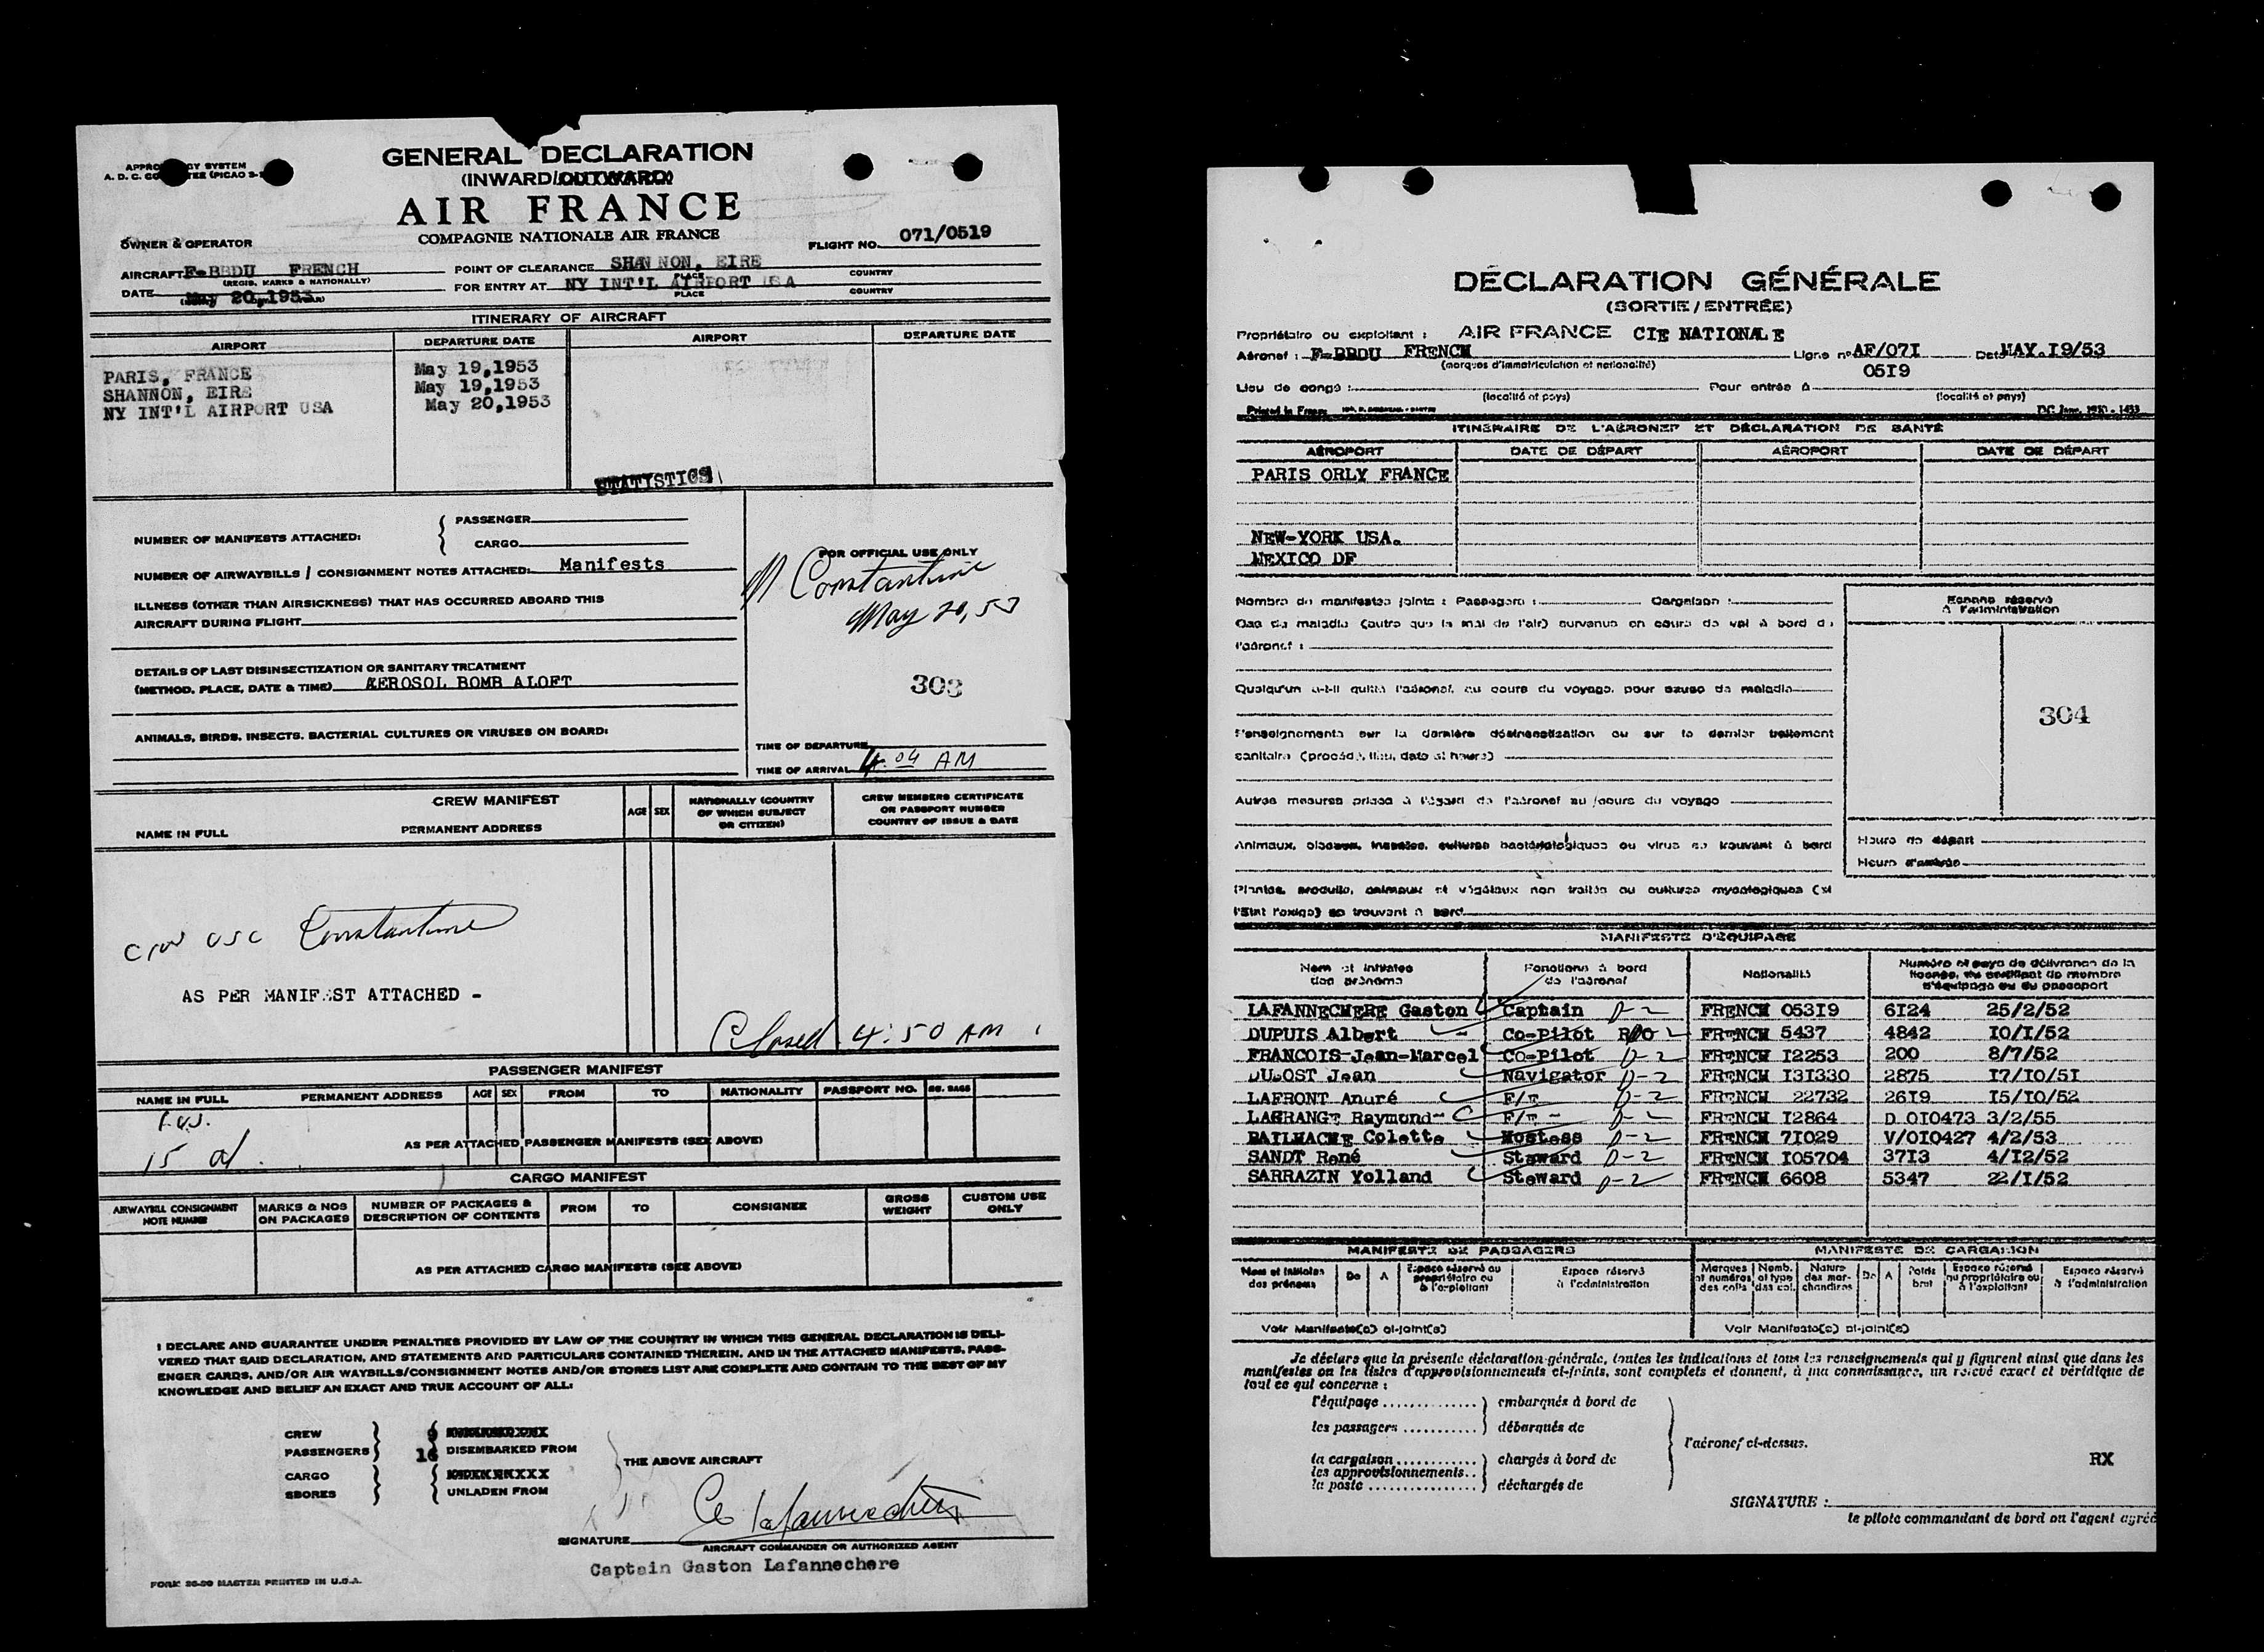 GENERAL DECLARATION
(INWARD/OUTWARD)
AIR FRANCE
COMPAGNIE NATIONALE AIR FRANCE
OWNER & OPERATOR
FLIGHT NO. 071/0519
AIRCRAFT F-BBDU FRENCH
(REGIS. MARKS & NATIONALLY)
POINT OF CLEARANCE SHANNON, EIRE
PLACE COUNTRY
DATE May 20,1953
FOR ENTRY AT NY INT'L AIRPORT USA
PLACE COUNTRY
ITINERARY OF AIRCRAFT
AIRPORT DEPARTURE DATE AIRPORT DEPARTURE DATE
PARIS, FRANCE May 19,1953
SHANNON, EIRE May 19,1953
NY INT'L AIRPORT USA May 20,1953
STATISTICS
NUMBER OF MANIFESTS ATTACHED: { PASSENGER
CARGO
NUMBER OF AIRWAYBILLS / CONSIGNMENT NOTES ATTACHED: Manifests
ILLNESS (OTHER THAN AIRSICKNESS) THAT HAS OCCURRED ABOARD THIS
AIRCRAFT DURING FLIGHT
DETAILS OF LAST DISINSECTIZATION OR SANITARY TREATMENT
(METHOD, PLACE, DATE & TIME) AEROSOL BOMB ALOFT
ANIMALS, BIRDS, INSECTS, BACTERIAL CULTURES OR VIRUSES ON BOARD:
FOR OFFICIAL USE ONLY
Constantine
May 20, 53
303
TIME OF DEPARTURE
TIME OF ARRIVAL 4:04 AM
CREW MANIFEST
NAME IN FULL PERMANENT ADDRESS AGE SEX NATIONALLY (COUNTRY OF WHICH SUBJECT OR CITIZEN) CREW MEMBERS CERTIFICATE OR PASSPORT NUMBER COUNTRY OF ISSUE & DATE
Constantine
AS PER MANIFEST ATTACHED -
Closed 4:50 AM
PASSENGER MANIFEST
NAME IN FULL PERMANENT ADDRESS AGE SEX FROM TO NATIONALITY PASSPORT NO. NO. BAGS
15 al.
AS PER ATTACHED PASSENGER MANIFESTS (SEE ABOVE)
CARGO MANIFEST
AIRWAYBILL CONSIGNMENT NOTE NUMBER MARKS & NOS ON PACKAGES NUMBER OF PACKAGES & DESCRIPTION OF CONTENTS FROM TO CONSIGNEE GROSS WEIGHT CUSTOM USE ONLY
AS PER ATTACHED CARGO MANIFESTS (SEE ABOVE)
I DECLARE AND GUARANTEE UNDER PENALTIES PROVIDED BY LAW OF THE COUNTRY IN WHICH THIS GENERAL DECLARATION IS DELI-
VERED THAT SAID DECLARATION, AND STATEMENTS AND PARTICULARS CONTAINED THEREIN, AND IN THE ATTACHED MANIFESTS, PASS-
ENGER CARDS, AND/OR AIR WAYBILLS/CONSIGNMENT NOTES AND/OR STORES LIST ARE COMPLETE AND CONTAIN TO THE BEST OF MY
KNOWLEDGE AND BELIEF AN EXACT AND TRUE ACCOUNT OF ALL:
CREW 9
PASSENGERS 16 DISEMBARKED FROM
THE ABOVE AIRCRAFT
CARGO
SBORES UNLADEN FROM
SIGNATURE G Lafannechère
AIRCRAFT COMMANDER OR AUTHORIZED AGENT
Captain Gaston Lafannechere
FORM 20-20 MASTER PRINTED IN U.S.A.
DÉCLARATION GÉNÉRALE
(SORTIE / ENTRÉE)
Propriétaire ou exploitant : AIR FRANCE CIE NATIONALE
Aéronef : F-BBDU FRENCH Ligne n° AF/071 Date MAY.19/53
(marques d'immatriculation et nationalité) 0519
Lieu de congé : Pour entrée à
(localité et pays) (localité et pays)
Printed in France
ITINÉRAIRE DE L'AÉRONEF ET DÉCLARATION DE SANTÉ
AÉROPORT DATE DE DÉPART AÉROPORT DATE DE DÉPART
PARIS ORLY FRANCE
NEW-YORK USA.
MEXICO DF
Nombre de manifestes joints : Passagers : Cargaison :
Cas de maladie (autre que le mal de l'air) survenus en cours de vol à bord de
l'aéronef :
Quelqu'un a-t-il quitté l'aéronef, au cours du voyage, pour cause de maladie
Renseignements sur la dernière désinsectisation ou sur le dernier traitement
sanitaire (procédé, lieu, date et heure)
Autres mesures prises à l'égard de l'aéronef au cours du voyage
Animaux, oiseaux, insectes, cultures bactériologiques ou virus se trouvant à bord
Plantes, produits, animaux et végétaux non traités ou cultures mycologiques (si
l'Etat l'exige) se trouvant à bord
Espace réservé à l'administration
304
Heure de départ
Heure d'arrivée
MANIFESTE D'ÉQUIPAGE
Nom et initiales des prénoms Fonctions à bord de l'aéronef Nationalité Numéro et pays de délivrance de la licence, du certificat de membre d'équipage ou du passeport
LAFANNECHERE Gaston Captain D-2 FRENCH 05319 6124 25/2/52
DUPUIS Albert - Co-Pilot D-2 FRENCH 5437 4842 10/1/52
FRANCOIS-Jean-Marcel Co-Pilot D-2 FRENCH 12253 200 8/7/52
DUBOST Jean Navigator D-2 FRENCH 131330 2875 17/10/51
LAFRONT André F/E D-2 FRENCH 22732 2619 15/10/52
LAGRANGE Raymond- F/E - D-2 FRENCH 12864 D 010473 3/2/55
BAILHACHE Colette Hostess D-2 FRENCH 71029 V/010427 4/2/53
SANDT René Steward D-2 FRENCH 105704 3713 4/12/52
SARRAZIN Yolland Steward D-2 FRENCH 6608 5347 22/1/52
MANIFESTE DE PASSAGERS MANIFESTE DE CARGAISON
Nom et initiales des prénoms De A Espace réservé au propriétaire ou à l'exploitant Espace réservé à l'administration Marques et numéros des colis Nomb. et type des col. Nature des mar-chandises De A Poids brut Espace réservé au propriétaire ou à l'exploitant Espace réservé à l'administration
Voir Manifeste(s) ci-joint(s) Voir Manifeste(s) ci-joint(s)
Je déclare que la présente déclaration générale, toutes les indications et tous les renseignements qui y figurent ainsi que dans les
manifestes ou les listes d'approvisionnements ci-joints, sont complets et donnent, à ma connaissance, un relevé exact et véridique de
tout ce qui concerne :
l'équipage .............. embarqués à bord de
les passagers ........... débarqués de
l'aéronef ci-dessus.
la cargaison ............ chargés à bord de
les approvisionnements..
la poste ................ déchargés de
RX
SIGNATURE :
le pilote commandant de bord ou l'agent agréé